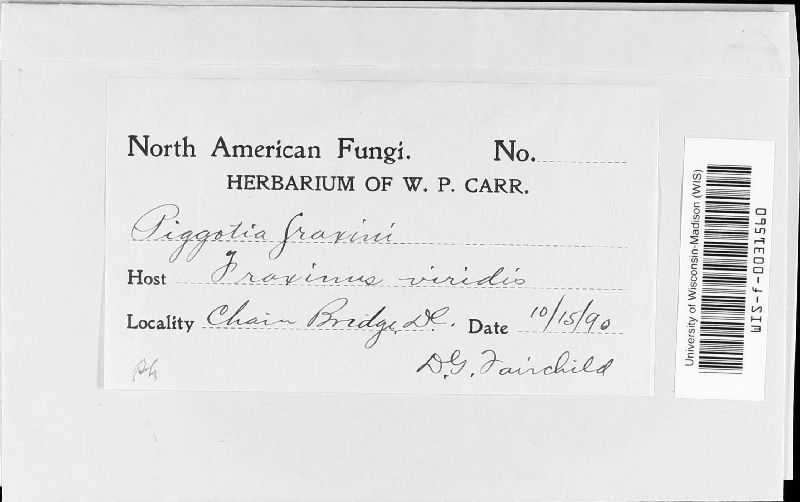 North American Fungi. No.
HERBARIUM OF W. P. CARR.
Piggotia fraxini
Host Fraxinus viridis
Locality Chain Bridge, DC. Date 10/15/90
D.G. Fairchild
University of Wisconsin-Madison (WIS)
WIS-f-0031560